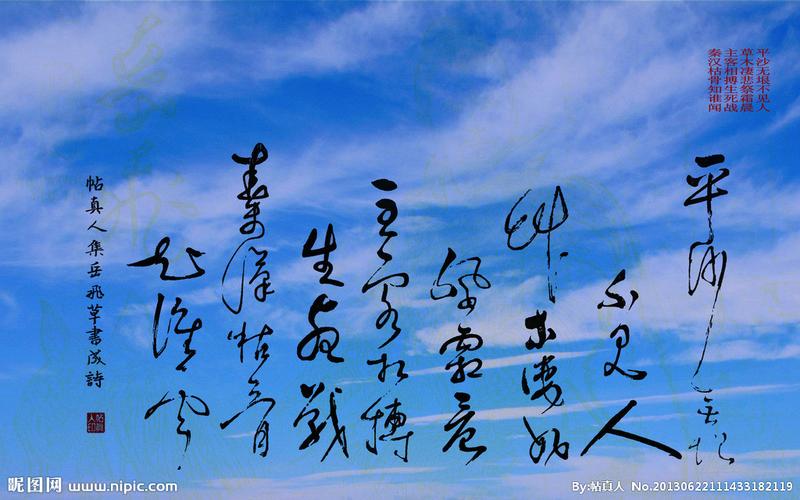 平沙无垠不见人
草木凄悲祭霜晨
主客相搏生死战
秦汉枯骨知谁闻
平沙无垠
不见人
草木凄
霜晨
主客相搏
生死战
秦漢枯骨
知谁
帖真人集岳飛草書成詩
昵图网 www.nipic.com
By:帖真人 No.20130622111433182119